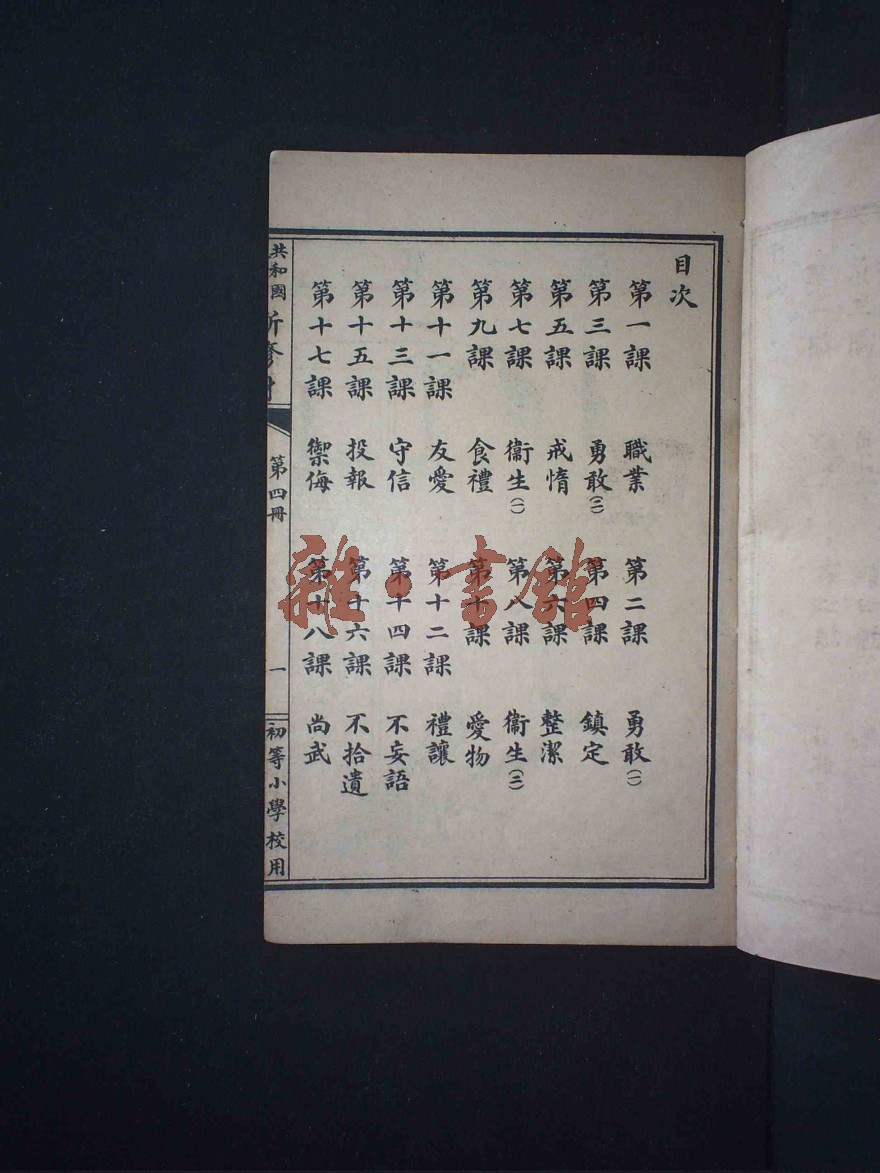 目次
第一課 職業 第二課 勇敢(一)
第三課 勇敢(二) 第四課 鎮定
第五課 戒惰 第六課 整潔
第七課 衞生(一) 第八課 衞生(二)
第九課 食禮 第十課 愛物
第十一課 友愛 第十二課 禮讓
第十三課 守信 第十四課 不妄語
第十五課 投報 第十六課 不拾遺
第十七課 禦侮 第十八課 尚武
共和國新修身 第四冊 一 初等小學校用
雜·書館